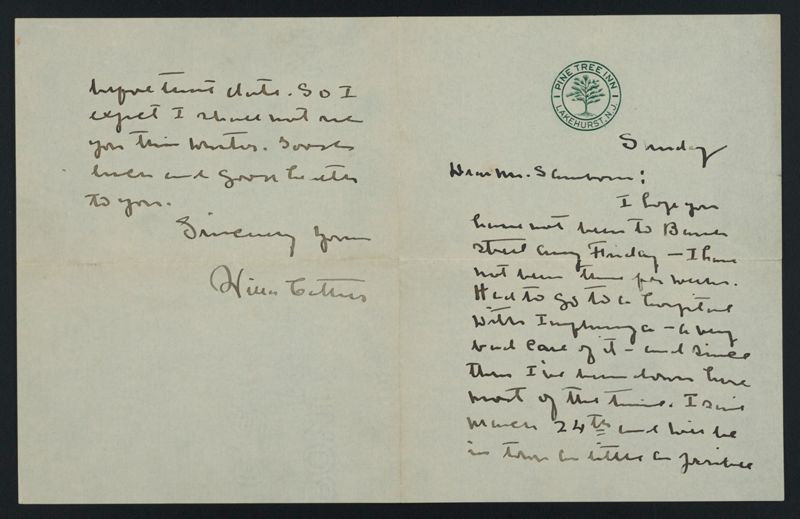 PINE TREE INN
LAKEHURST, N.J.
Sunday
Dear Mr. Sanborn:
I hope you
have not been to Bank
street any Friday — I have
not been there for weeks.
Had to go to a hospital
with Influenza — a very
bad case of it — and since
then I've been down here
most of the time. I sail
March 24th and will be
in town as little as possible
before that date. So I
expect I shall not see
you this winter. Good
luck and good health
to you.
Sincerely yours
Willa Cather